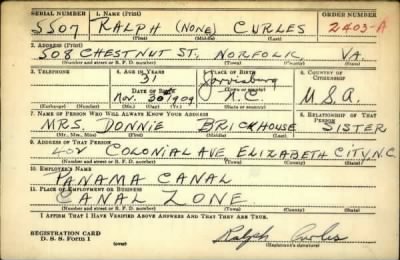 SERIAL NUMBER 1. NAME (Print) ORDER NUMBER
S507 RALPH (NONE) CURLES 2403-A
(First) (Middle) (Last)
2. ADDRESS (Print)
508 CHESTNUT ST. NORFOLK VA.
(Number and street or R. F. D. number) (Town) (County) (State)
3. TELEPHONE 4. AGE IN YEARS 5. PLACE OF BIRTH 6. COUNTRY OF CITIZENSHIP
31
DATE OF BIRTH (Town or county)
Nov. 30 1909 N.C. U.S.A.
(Exchange) (Number) (Mo.) (Day) (Yr.) (State or country)
7. NAME OF PERSON WHO WILL ALWAYS KNOW YOUR ADDRESS 8. RELATIONSHIP OF THAT PERSON
MRS. DONNIE BRICKHOUSE SISTER
(Mr., Mrs., Miss) (First) (Middle) (Last)
9. ADDRESS OF THAT PERSON
402 COLONIAL AVE ELIZABETH CITY, N.C.
(Number and street or R. F. D. number) (Town) (County) (State)
10. EMPLOYER'S NAME
PANAMA CANAL
11. PLACE OF EMPLOYMENT OR BUSINESS
CANAL ZONE
(Number and street or R. F. D. number) (Town) (County) (State)
I AFFIRM THAT I HAVE VERIFIED ABOVE ANSWERS AND THAT THEY ARE TRUE.
REGISTRATION CARD
D. S. S. Form 1 (over) Ralph Curles
(Registrant's signature)